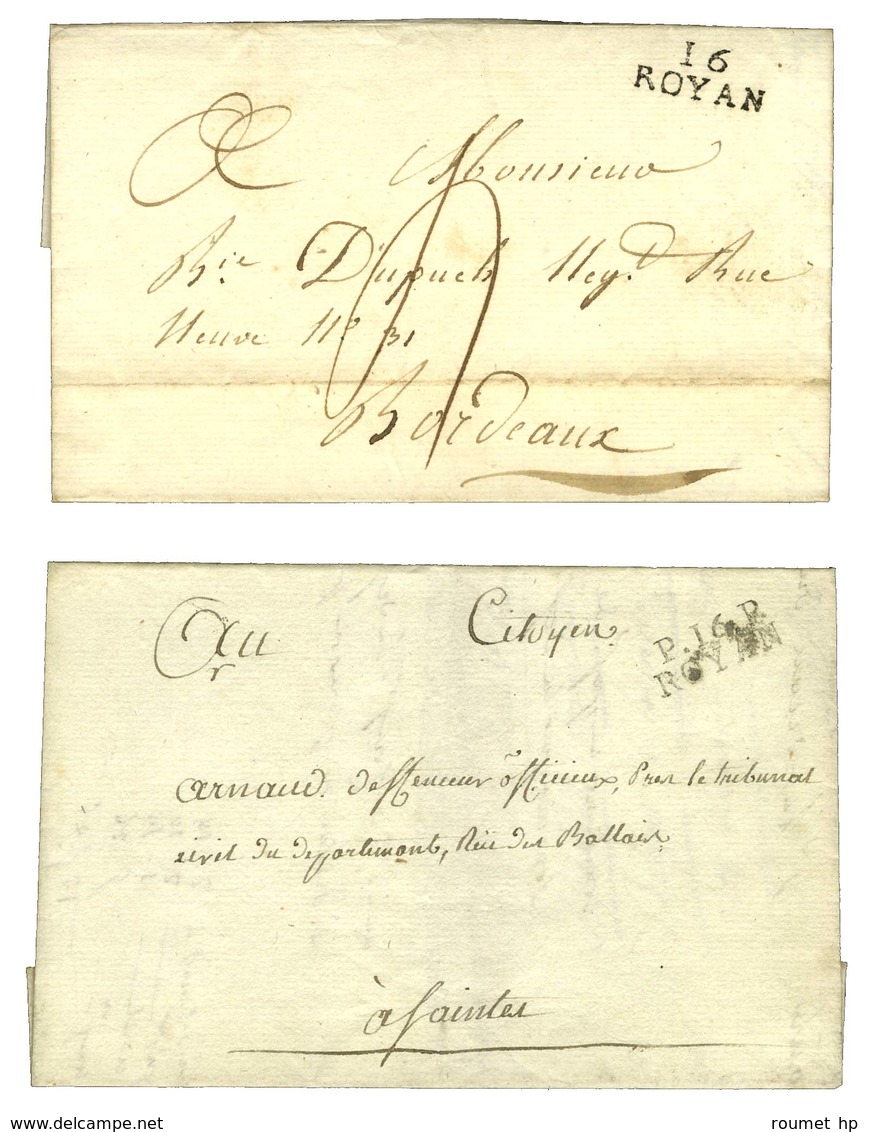 16
ROYAN
A Monsieur
Bie. Dupuch Neg.t Rue
Neuve N° 31
Bordeaux
P.16.P.
ROYAN
Au Citoyen
Arnaud. deffenceur officieux, Pres le tribunal
civil du departement, Rüe des Ballais
à Saintes
www.delcampe.net
roumet hp